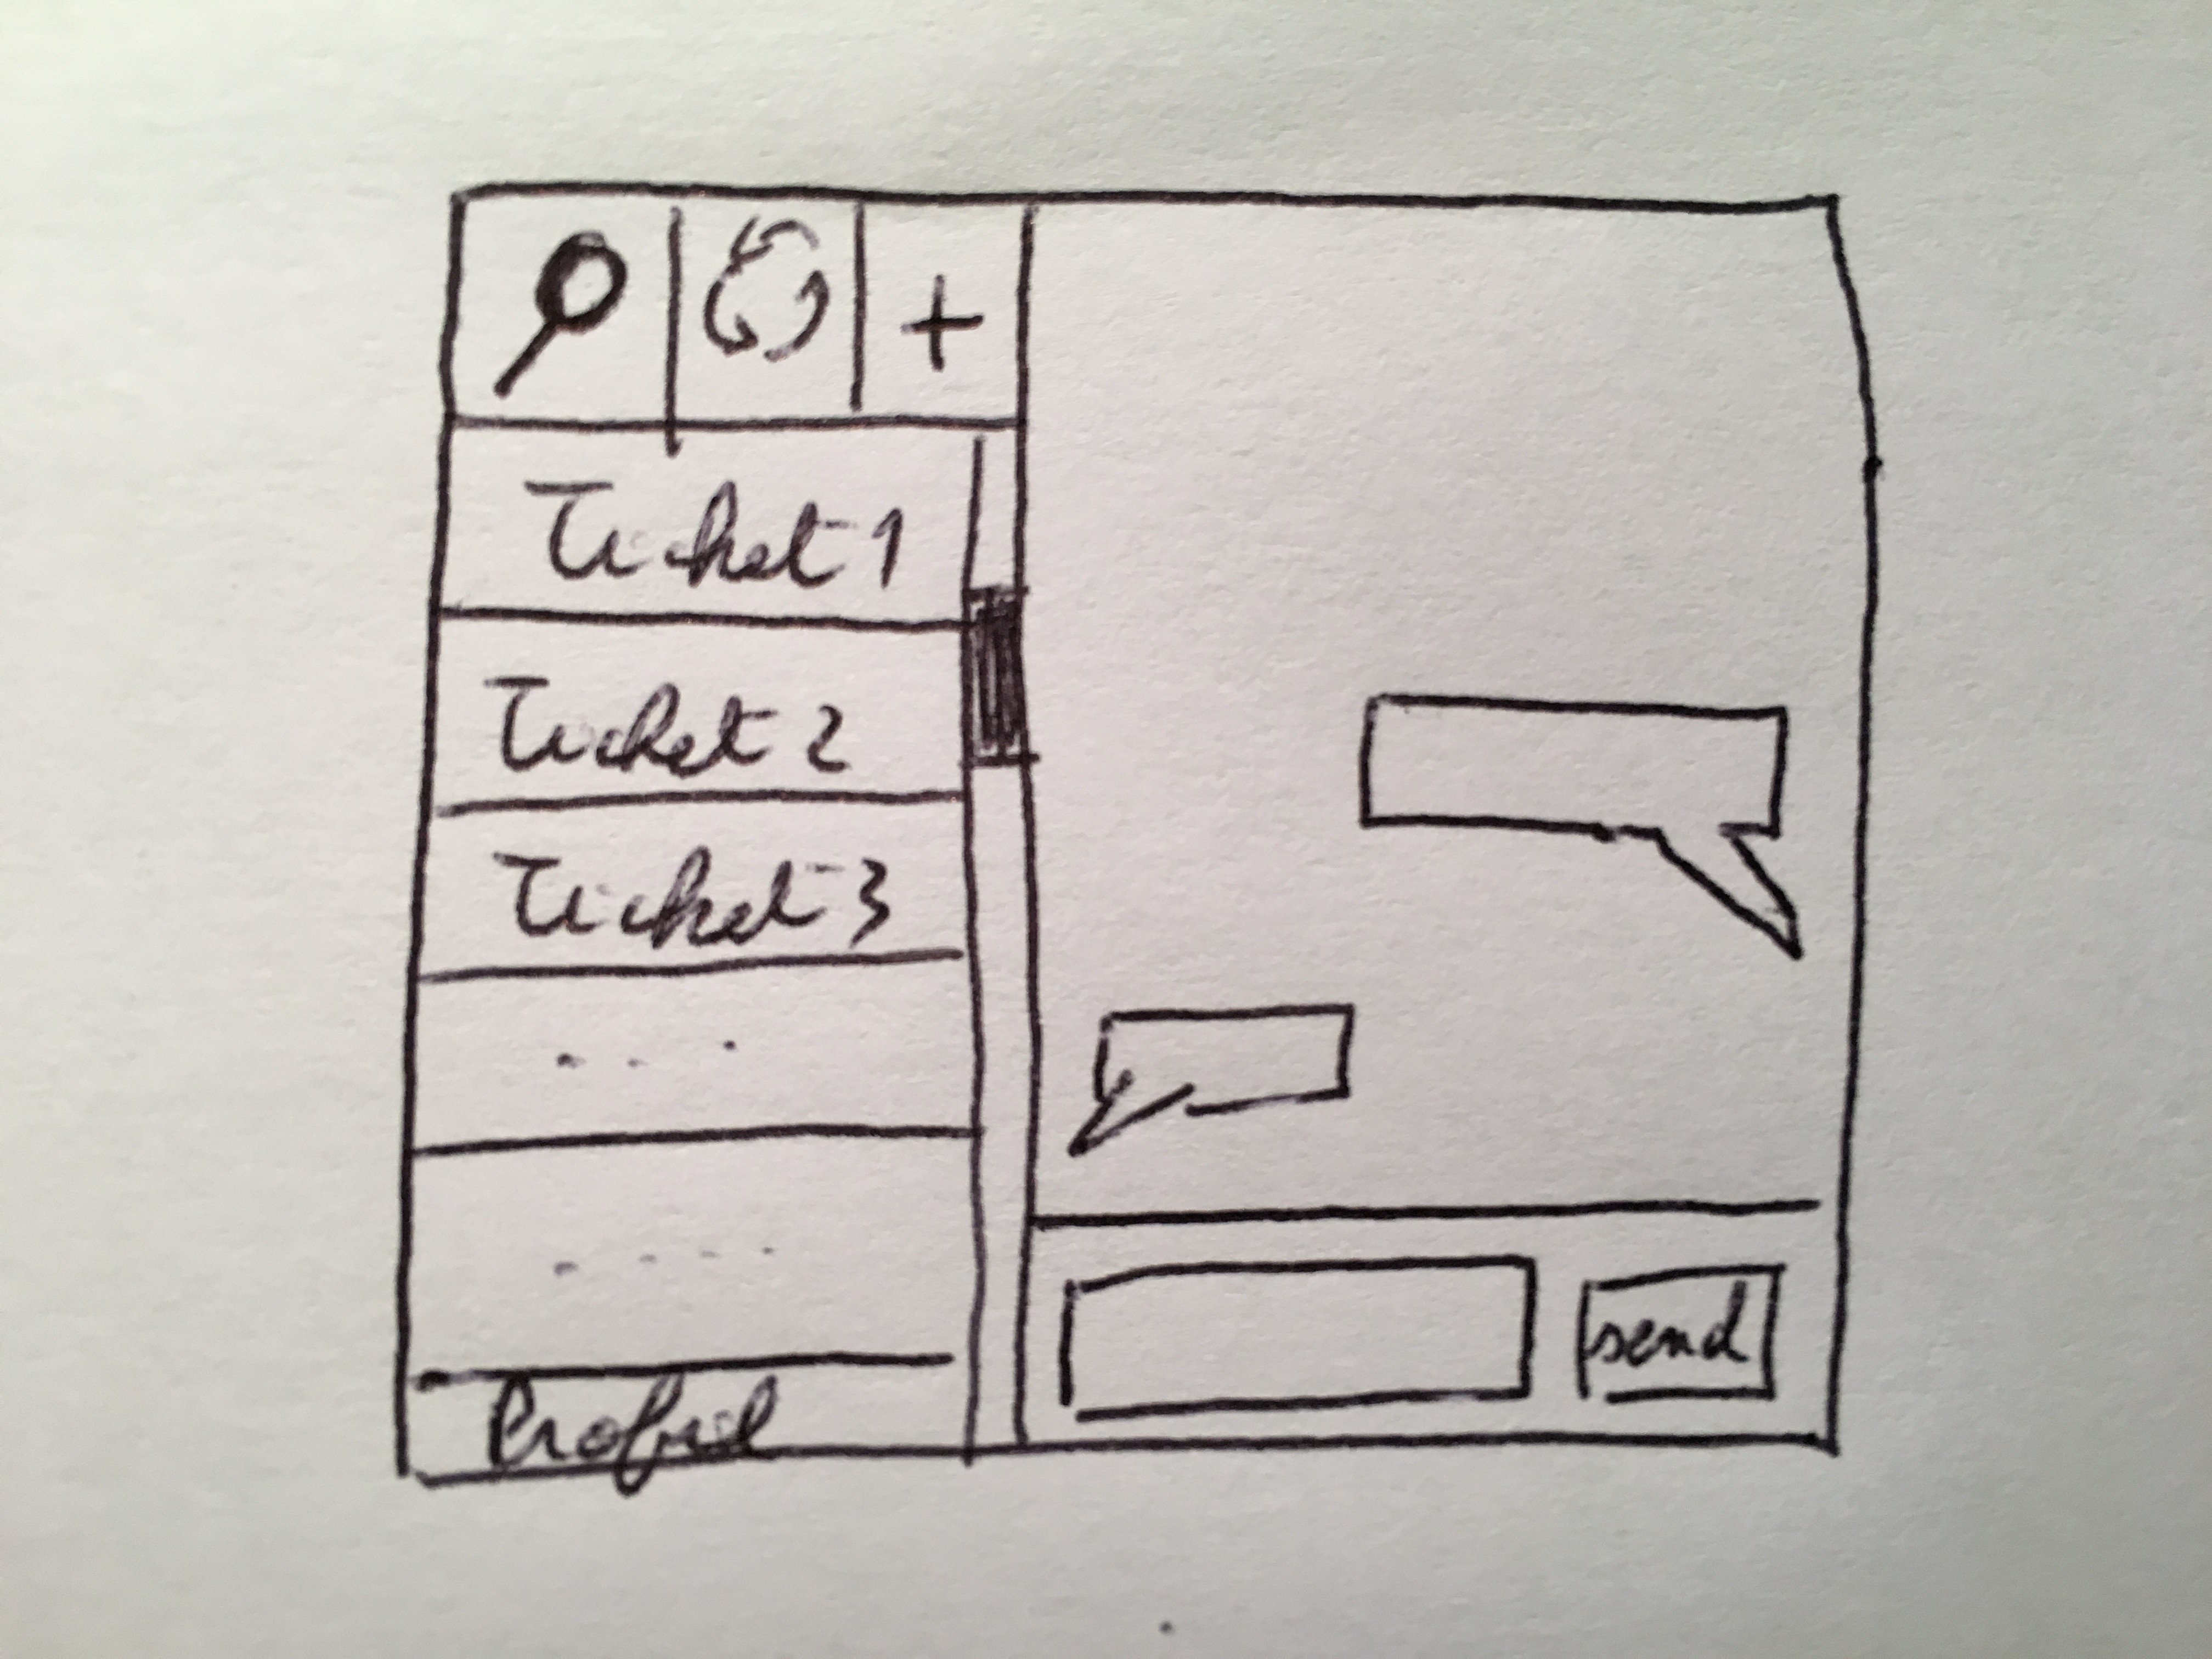 +
Ticket 1
Ticket 2
Ticket 3
. . .
. . . .
Profil
send